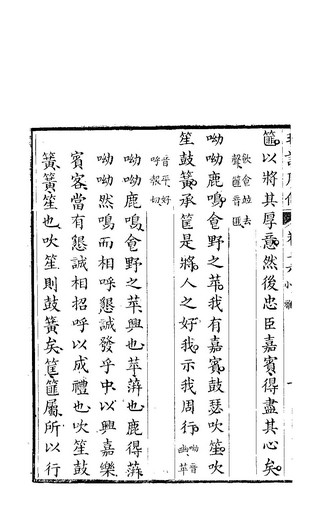 篚以將其厚意然後忠臣嘉賓得盡其心矣
飲食竝去
聲篚音匪
呦呦鹿鳴食野之苹我有嘉賓鼓瑟吹笙吹
笙鼓簧承筐是將人之好我示我周行
呦音
幽苹
音平好
呼報切
呦呦鹿鳴食野之苹興也苹蓱也鹿得蓱
呦呦然鳴而相呼懇誠發乎中以興嘉樂
賓客當有懇誠相招呼以成禮也吹笙鼓
簧簧笙也吹笙則鼓簧矣筐篚屬所以行